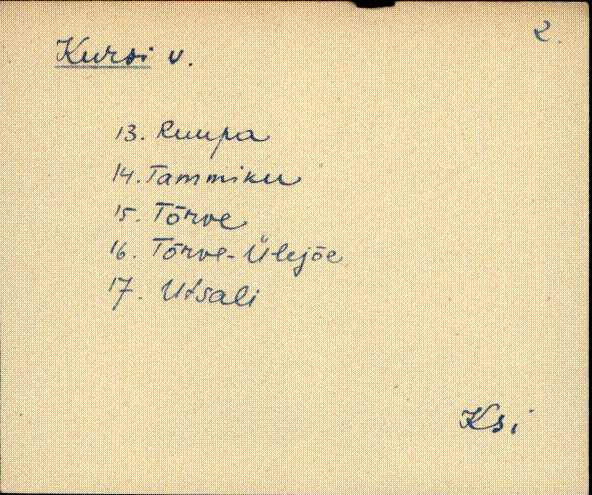 2.
Kursi v.
13. Ruupa
14. Tammiku
15. Tõrve
16. Tõrve-Ülejõe
17. Utsali
Ksi